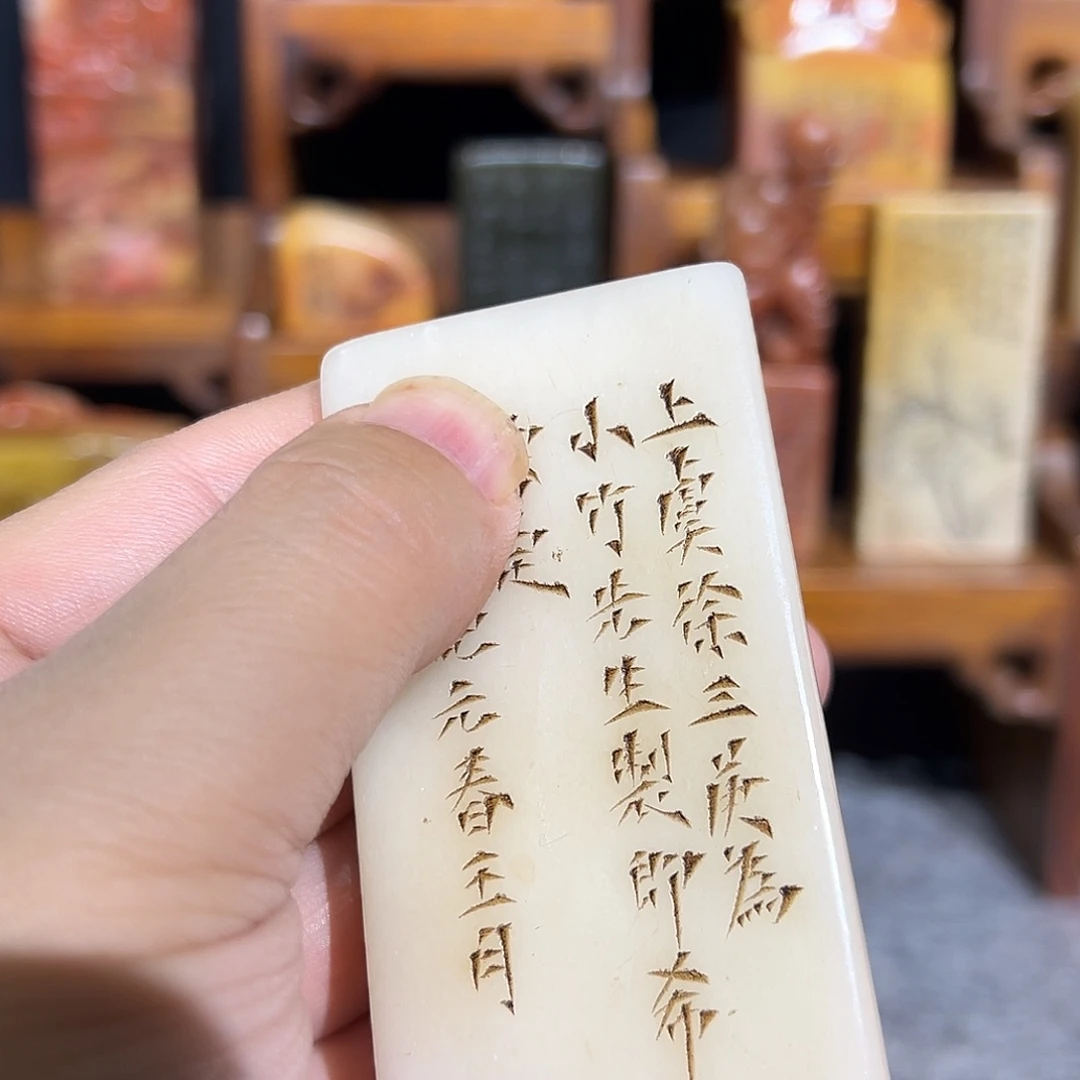 上虞徐三庚為
小竹先生製即希
定
元春王月